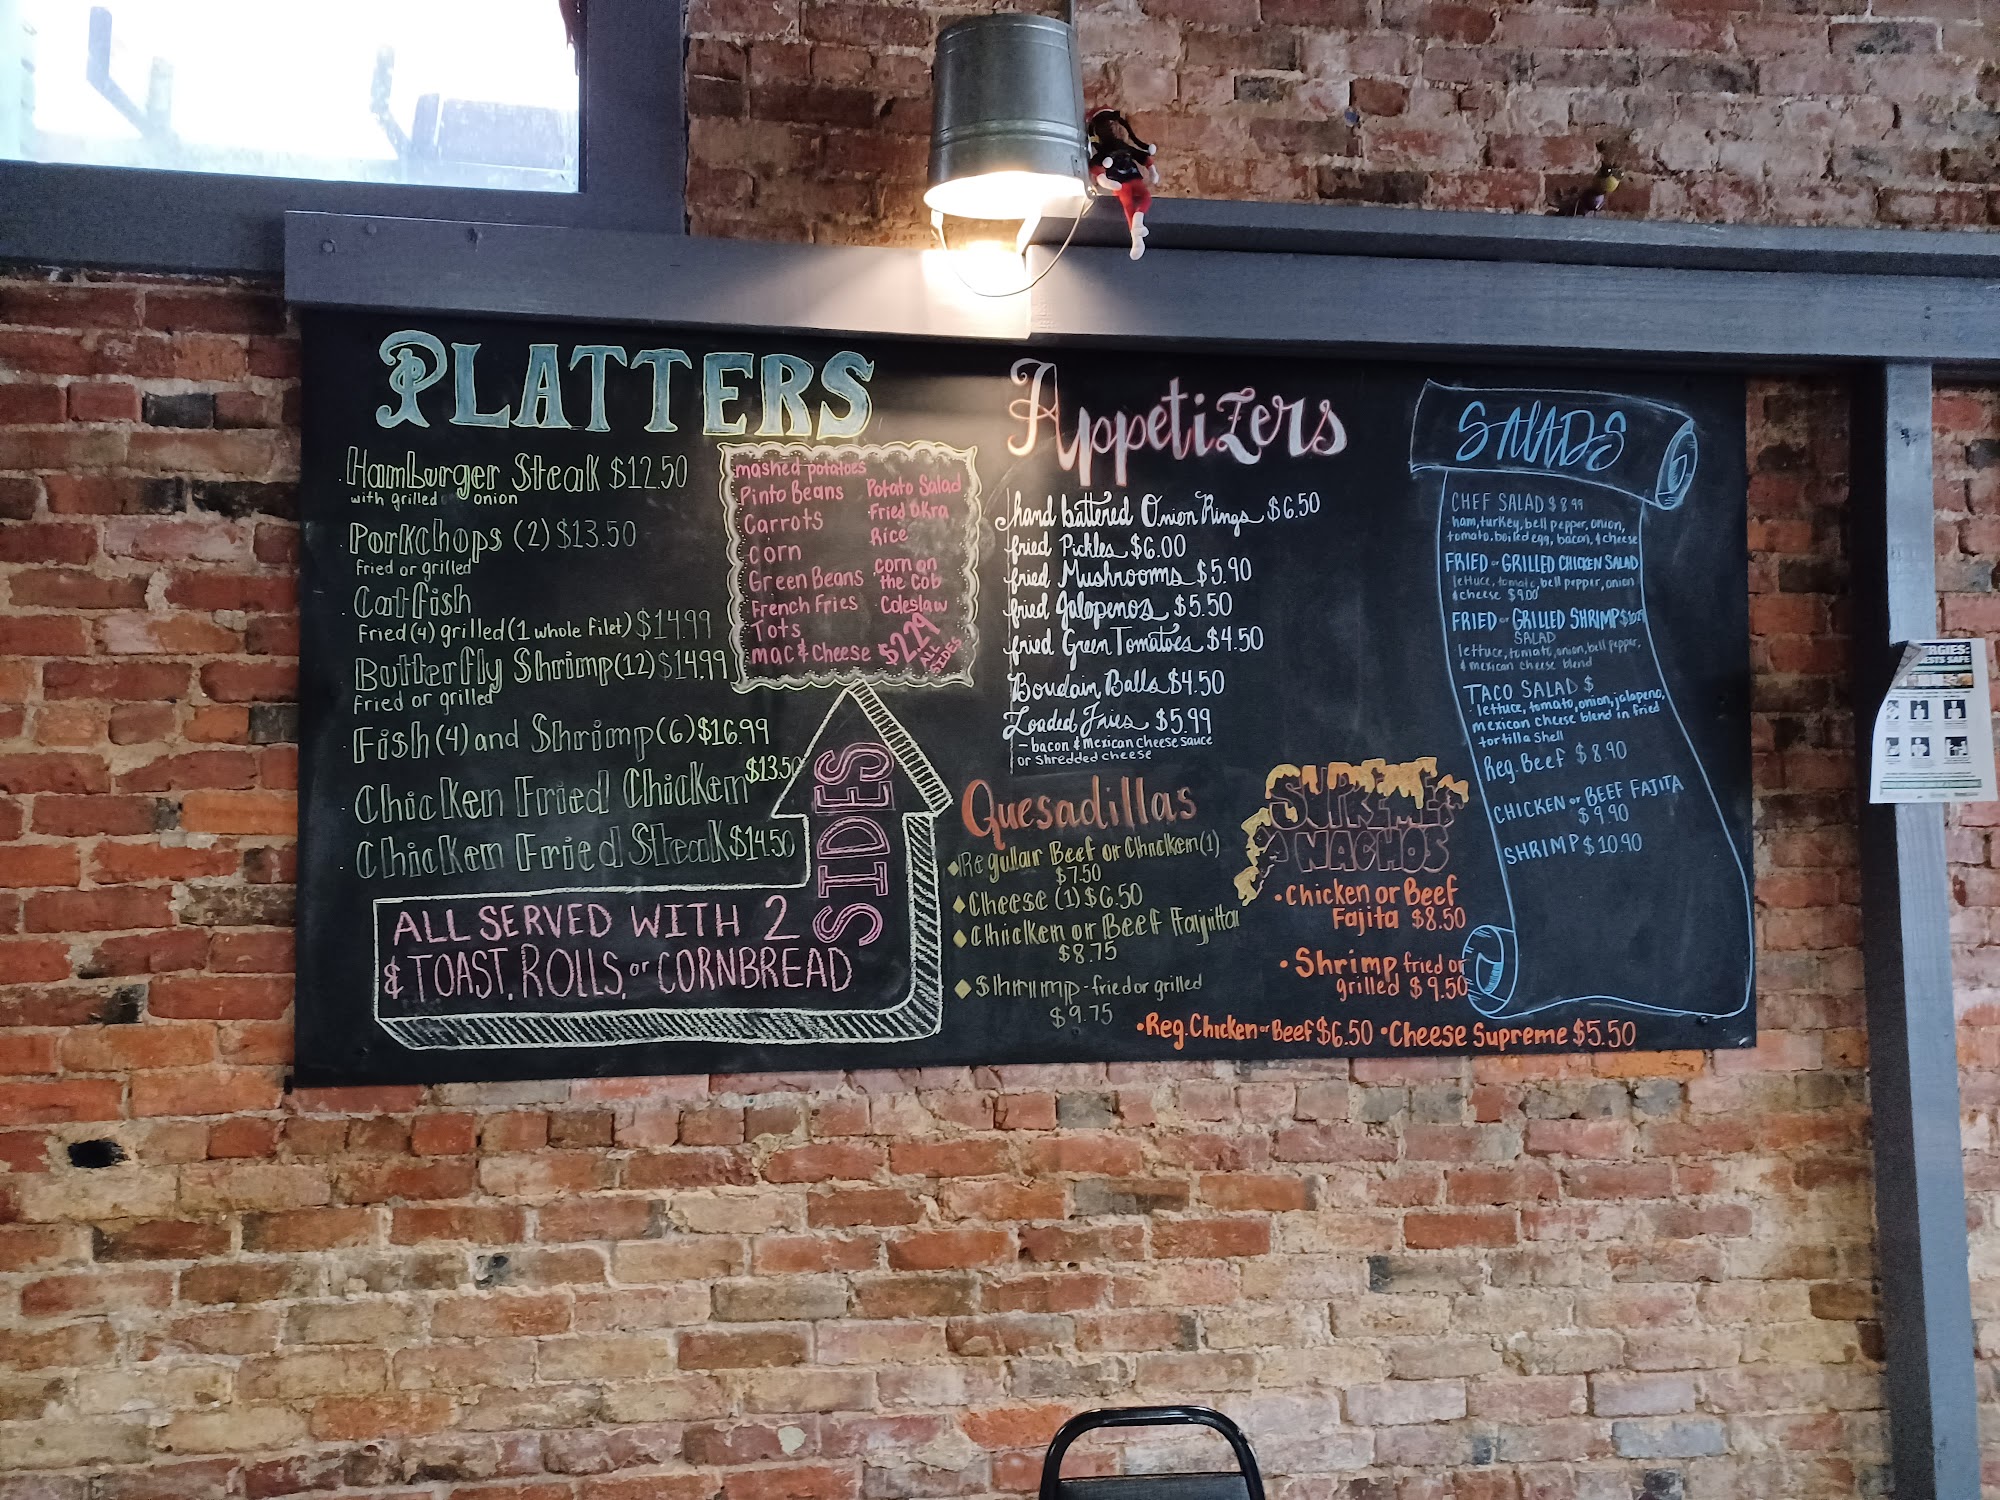 PLATTERS
Hamburger Steak $12.50
with grilled onion
Porkchops (2) $13.50
fried or grilled
Catfish
Fried (4) grilled (1 whole filet) $14.99
Butterfly Shrimp (12) $14.99
Fried or grilled
Fish (4) and Shrimp (6) $16.99
Chicken Fried Chicken $13.50
Chicken Fried Steak $14.50
ALL SERVED WITH 2
& TOAST, ROLLS, or CORNBREAD
SIDES
mashed potatoes
Pinto Beans
Carrots
Corn
Green Beans
French Fries
Tots
mac & Cheese
Potato Salad
Fried Okra
Rice
corn on
the cob
Coleslaw
$2.29
ALL
SIDES
Appetizers
hand battered Onion Rings $6.50
fried Pickles $6.00
fried Mushrooms $5.90
fried Jalopenos $5.50
fried Green Tomatoes $4.50
Boudain Balls $4.50
Loaded Fries $5.99
- bacon & Mexican cheese sauce
or shredded cheese
Quesadillas
Regular Beef or Chicken (1)
$7.50
Cheese (1) $6.50
Chicken or Beef Fajita
$8.75
Shrimp - fried or grilled
$9.75
SUPREME
NACHOS
• Chicken or Beef
Fajita $8.50
• Shrimp fried or
grilled $9.50
• Reg. Chicken or Beef $6.50 • Cheese Supreme $5.50
SALADS
CHEF SALAD $8.99
ham, turkey, bell pepper, onion,
tomato, boiled egg, bacon, & cheese
FRIED or GRILLED CHICKEN SALAD
lettuce, tomato, bell pepper, onion
& cheese $9.00
FRIED or GRILLED SHRIMP
SALAD
lettuce, tomato, onion, bell pepper,
& mexican cheese blend
TACO SALAD $
lettuce, tomato, onion, jalapeno,
mexican cheese blend in fried
tortilla shell
Reg. Beef $8.90
CHICKEN or BEEF FAJITA
$9.90
SHRIMP $10.90